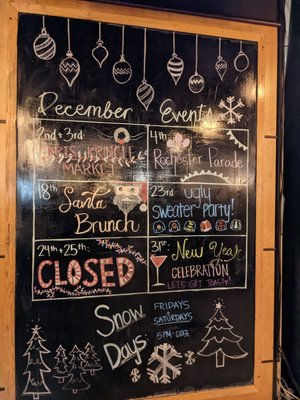 December Events
2nd + 3rd
KRIS KRINGLE
MARKET
4th
Rochester Parade
18th
Santa
Brunch
23rd ugly
Sweater Party!
24th + 25th:
CLOSED
31st New Year
CELEBRATION
LET'S GET TOASTY!
Snow
Days
FRIDAYS
SATURDAYS
5PM-CLOSE